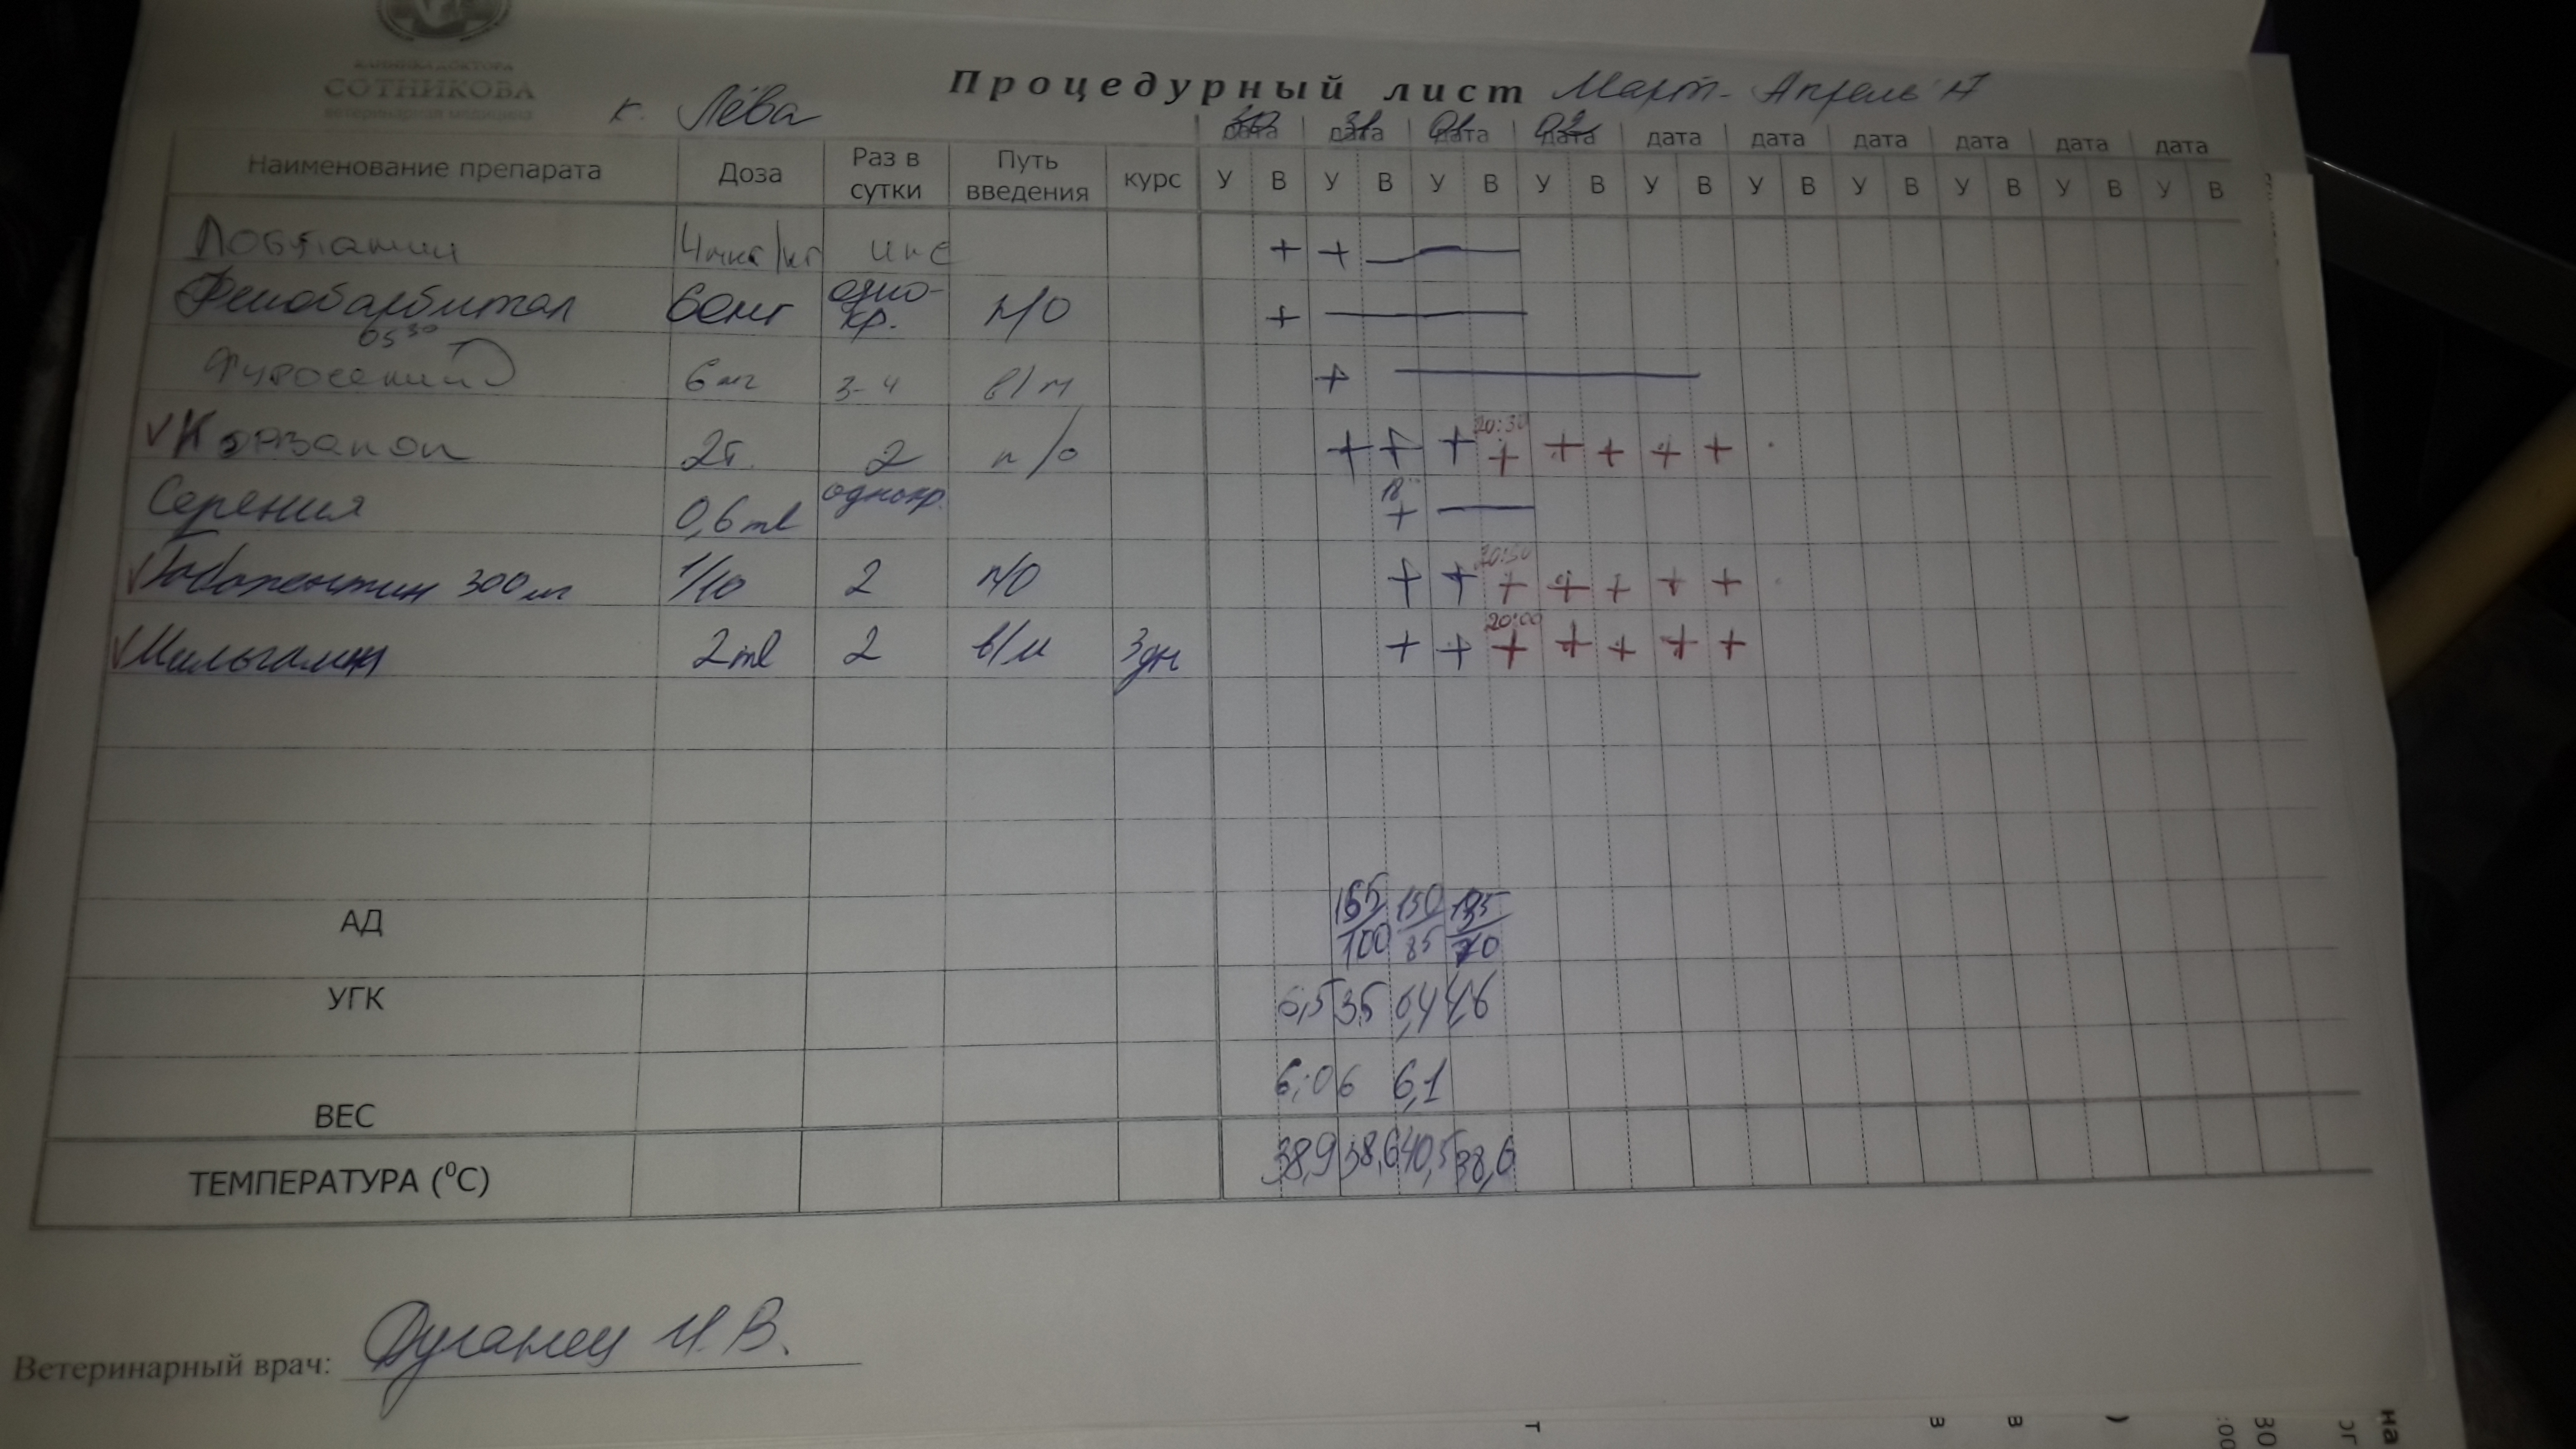 КЛИНИКА ДОКТОРА
СОТНИКОВА
ветеринарная медицина
Процедурный лист Март - Апрель 17
к. Лёва
30 31 01 02
дата дата дата дата дата дата дата дата дата дата
Наименование препарата Доза Раз в сутки Путь введения курс У В У В У В У В У В У В У В У В У В У В
4мкг/кг ипс + +
Фенобарбитал 60мг одно-кр. п/о +
05 30
Фуросемид 6мг 3-4 в/м +
V 2т. 2 п/о + + + 20:30 + + + + +
Серения 0,6 ml однокр. +
V Габапентин 300мг 1/10 2 п/о + + 20:30 + + + + +
V Мильгамма 2ml 2 в/м 3дн + + 20:00 + + + + +
АД 165/100 150/85
УГК 6,5 3,5 4,6
ВЕС 6,06 6,1
ТЕМПЕРАТУРА (⁰С) 38,9 38,6 40,5 38,6
Ветеринарный врач: И.В.
Т
В
В
)
:00
30
ог
на